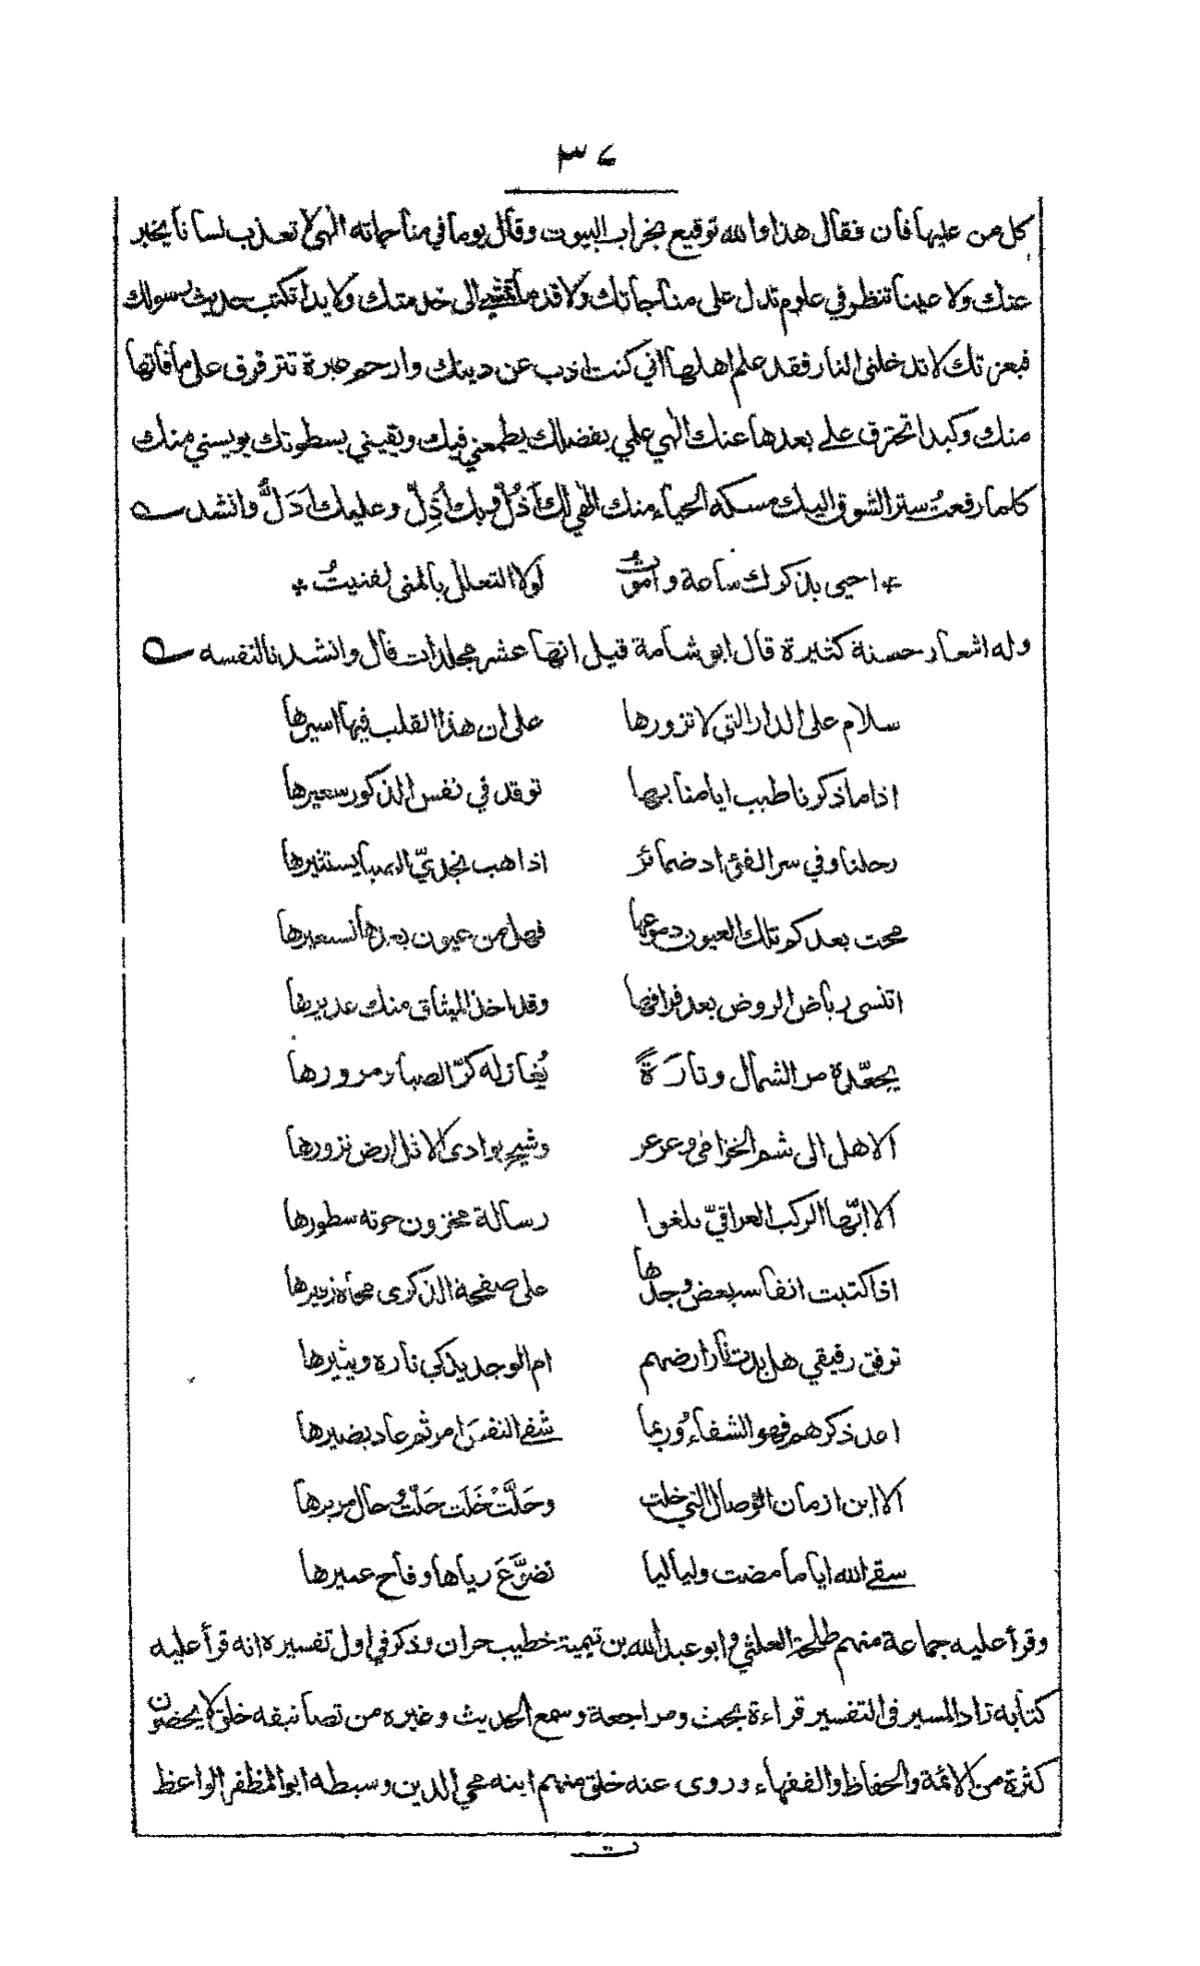 ٣٤
كل من عليها فان فقال هذا والله توقيع بخراب البيوت وقال يوما في مناجاته الهي لا تعذب لسانا يخبر
عنك ولا عينا تنظر في علوم تدل على مناجاتك ولا قدما تمشي الى خدمتك ولا يدا تكتب حديث رسولك
فبعزتك لا تدخلني النار فقد علم اهلها اني كنت اذب عن دينك وارحم عبرة تترقرق على ما فاتها
منك وكبدا تحترق على بعدها عنك الهي علمي بفضلك يطمعني فيك ويقيني بسطوتك يويسني منك
كلما رفعت ستر الشوق اليك مسكه الحياء منك الهي لك اَذُلّ وبك اُذِلّ وعليك اَدَلُّ وانشد
* احيى بذكرك ساعة واموت لولا التعلل بالمنى لفنيتُ *
وله اشعار حسنة كثيرة قال ابو شامة قيل انها عشر مجلدات قال وانشدنا لنفسه
سلام على الدار التي لا تزورها على ان هذا القلب فيها اسيرها
اذا ما ذكرنا طيب ايامنا بها توقد في نفس الذكور سعيرها
رحلنا وفي سر الفؤاد ضمائر اذا هب نجديّ الصبا يستثيرها
محت بعدكم تلك العيون دموعها فهل من عيون بعدها نستعيرها
اتنسى رياض الروض بعد فراقها وقد اخذ الميثاق منك غديرها
يجعّده مر الشمال وتارَةً يُغازله كرّ الصبا ومرورها
الا هل الى شم الخزامى وعرعر وشيح بوادى الاثل ارض نزورها
الا ايّها الركب العراقيّ بلغوا رسالة محزون حوته سطورها
اذا كتبت انفاسه بعض وجدها على صفحة الذكرى محاه زفيرها
ترفق رفيقي هل بدت نار ارضهم ام الوجد يذكي ناره ويثيرها
اعد ذكرهم فهو الشفاء وُربما شفى النفس امر ثم عاد يضيرها
الا اين ازمان الوصال التي خلت وحَلَّتْ خَلَت حَلّتْ وحال مريرها
سقى الله اياما مضت ولياليا تضوَّعَ رياها وفاح عبيرها
وقرأ عليه جماعة منهم طلحة العلثي وابو عبد الله بن تيمية خطيب حران وذكر في اول تفسيره انه قرأ عليه
كتابه زاد المسير في التفسير قراءة بحث ومراجعة وسمع الحديث وغيره من تصانيفه خلق لا يحصون
كثرة من الائمة والحفاظ والفقهاء وروى عنه خلق منهم ابنه محي الدين وسبطه ابو المظفر الواعظ
ت